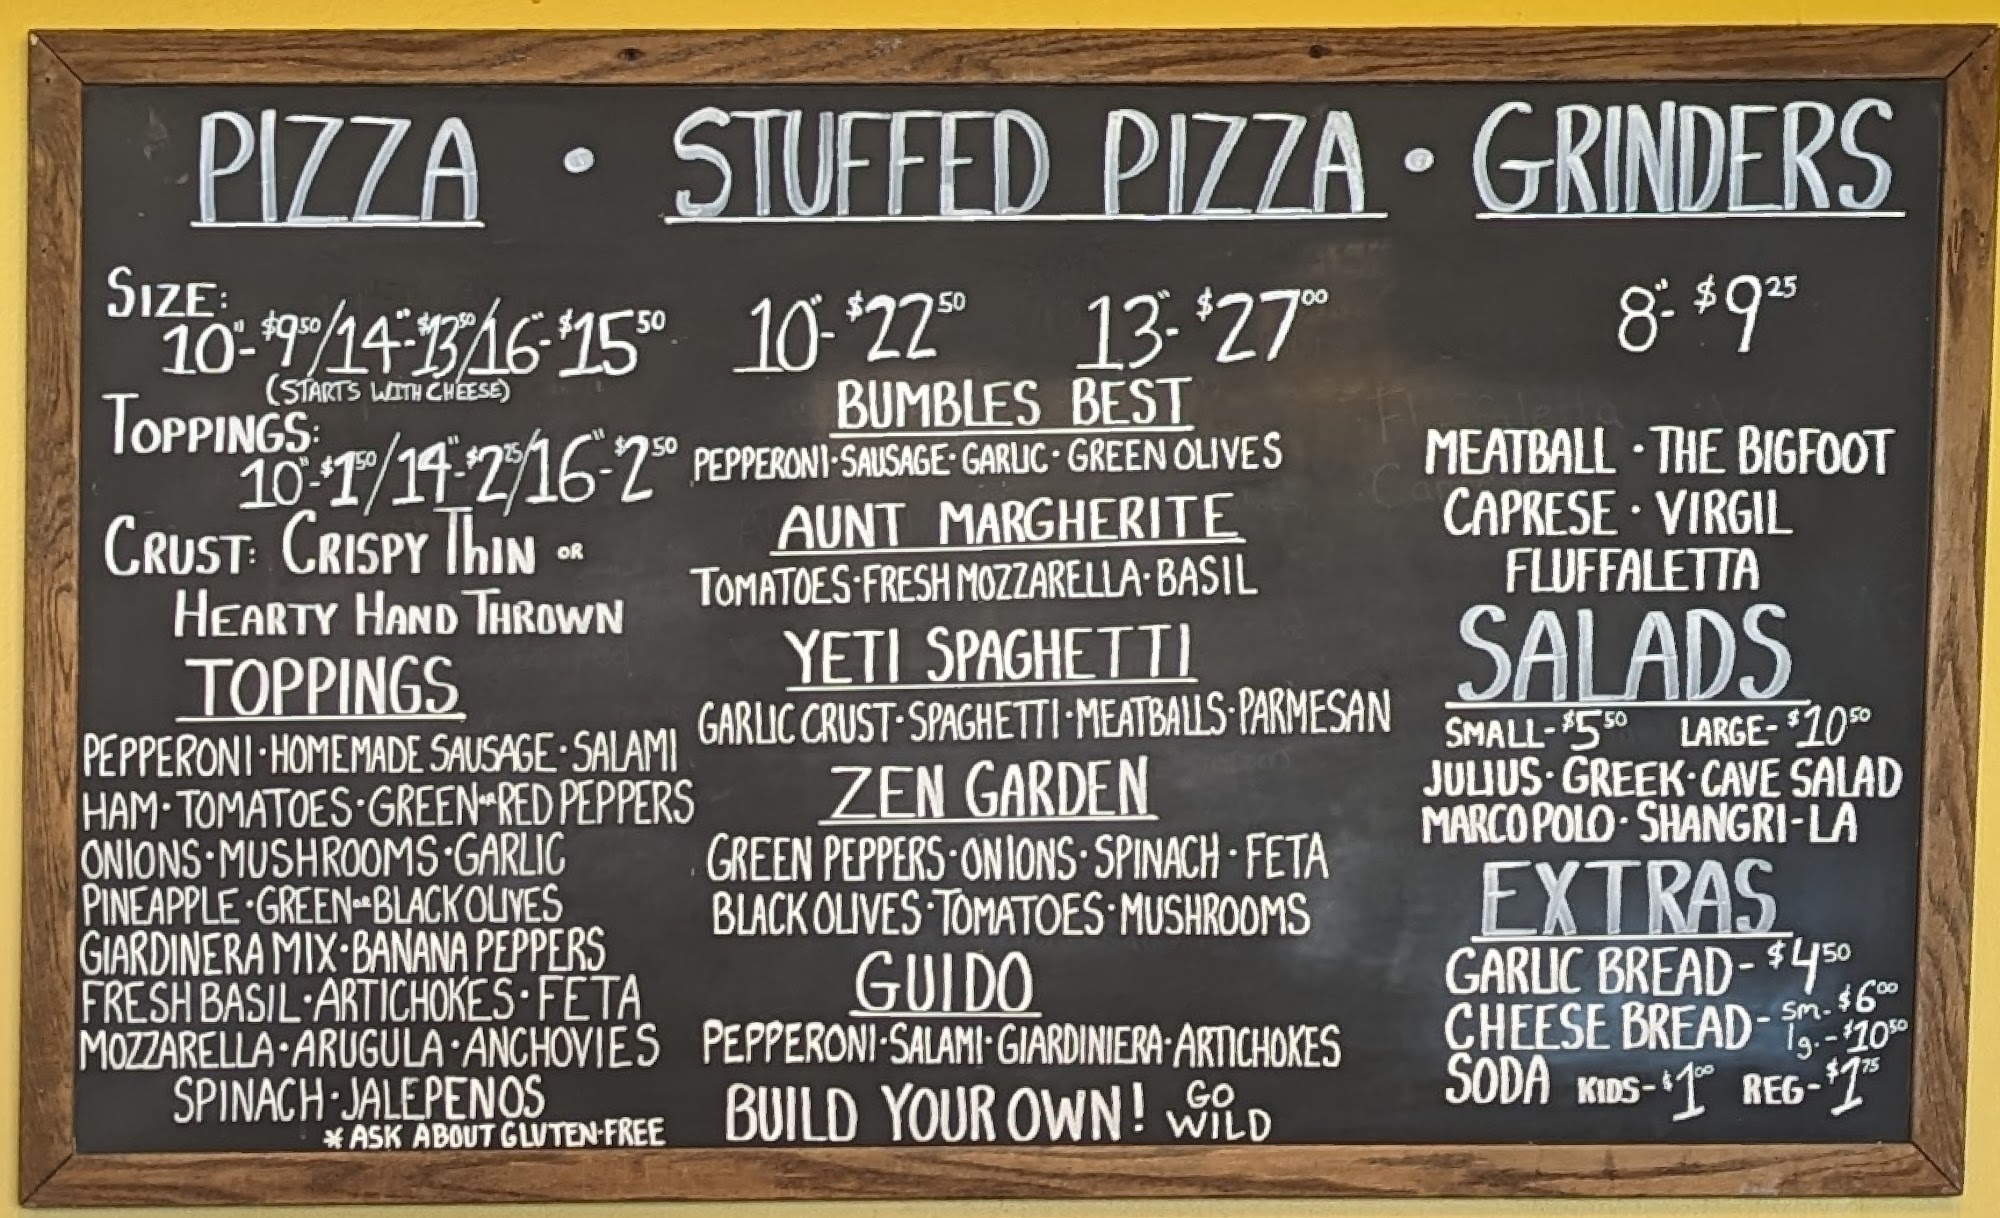 PIZZA • STUFFED PIZZA • GRINDERS
SIZE:
10"-$9.50/14"-$13.50/16"-$15.50
(STARTS WITH CHEESE)
TOPPINGS:
10"-$1.50/14"-$2.25/16"-$2.50
CRUST: CRISPY THIN OR
HEARTY HAND THROWN
TOPPINGS
PEPPERONI·HOMEMADE SAUSAGE·SALAMI
HAM·TOMATOES·GREEN OR RED PEPPERS
ONIONS·MUSHROOMS·GARLIC
PINEAPPLE·GREEN OR BLACK OLIVES
GIARDINERA MIX·BANANA PEPPERS
FRESH BASIL·ARTICHOKES·FETA
MOZZARELLA·ARUGULA·ANCHOVIES
SPINACH·JALEPENOS
* ASK ABOUT GLUTEN-FREE
10"-$22.50 13"-$27.00
BUMBLES BEST
PEPPERONI·SAUSAGE·GARLIC·GREEN OLIVES
AUNT MARGHERITE
TOMATOES·FRESH MOZZARELLA·BASIL
YETI SPAGHETTI
GARLIC CRUST·SPAGHETTI·MEATBALLS·PARMESAN
ZEN GARDEN
GREEN PEPPERS·ONIONS·SPINACH·FETA
BLACK OLIVES·TOMATOES·MUSHROOMS
GUIDO
PEPPERONI·SALAMI·GIARDINIERA·ARTICHOKES
BUILD YOUR OWN! GO WILD
8"-$9.25
MEATBALL · THE BIGFOOT
CAPRESE · VIRGIL
FLUFFALETTA
SALADS
SMALL-$5.50 LARGE-$10.50
JULIUS·GREEK·CAVE SALAD
MARCO POLO·SHANGRI-LA
EXTRAS
GARLIC BREAD-$4.50
CHEESE BREAD- sm.-$6.00
lg.-$10.50
SODA KIDS-$1.00 REG-$1.75